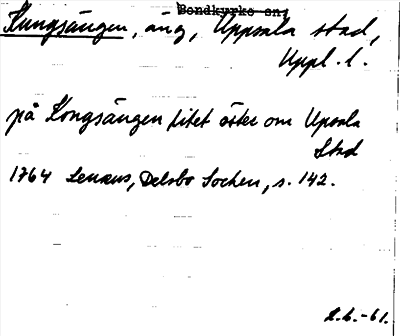 Bondkyrko sn,
Kungsängen, äng, Uppsala stad,
Uppl. l.
på Kongsängen litet öster om Upsala
Stad
1764 Lenæus, Delsbo Sochen, s. 142.
2.6.-61.